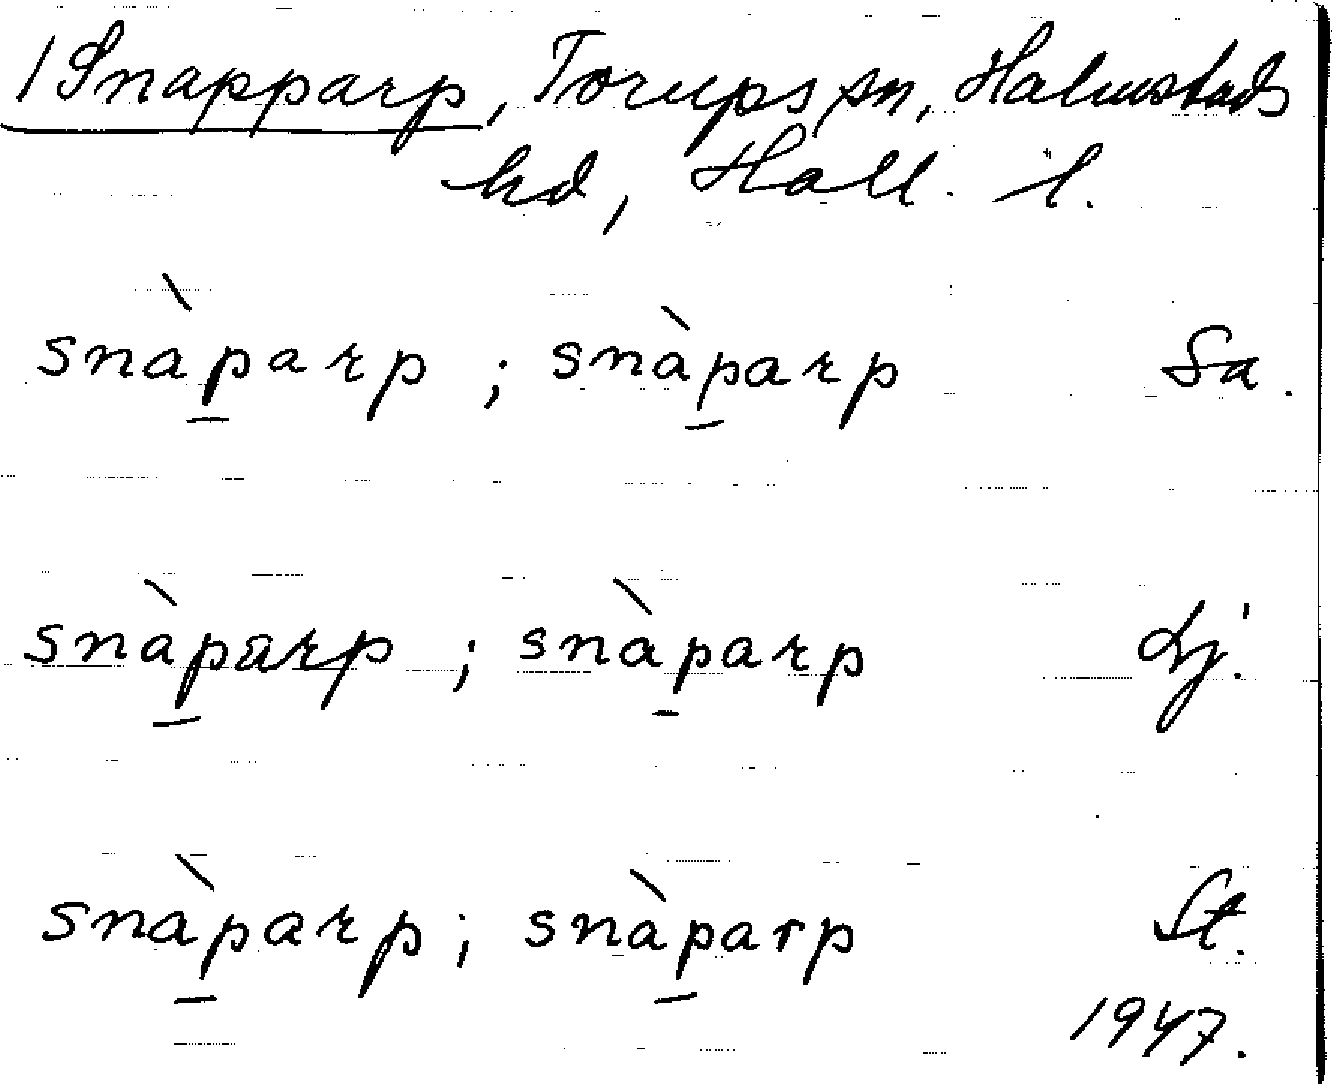 /Snapparp, Torups sn, Halmstads
hd, Hall. l.
snàp̱arp ; snàp̱arp Sa.
snàp̱arp ; snàp̱arp Lj.
snàp̱arp ; snàp̱arp St.
1947.